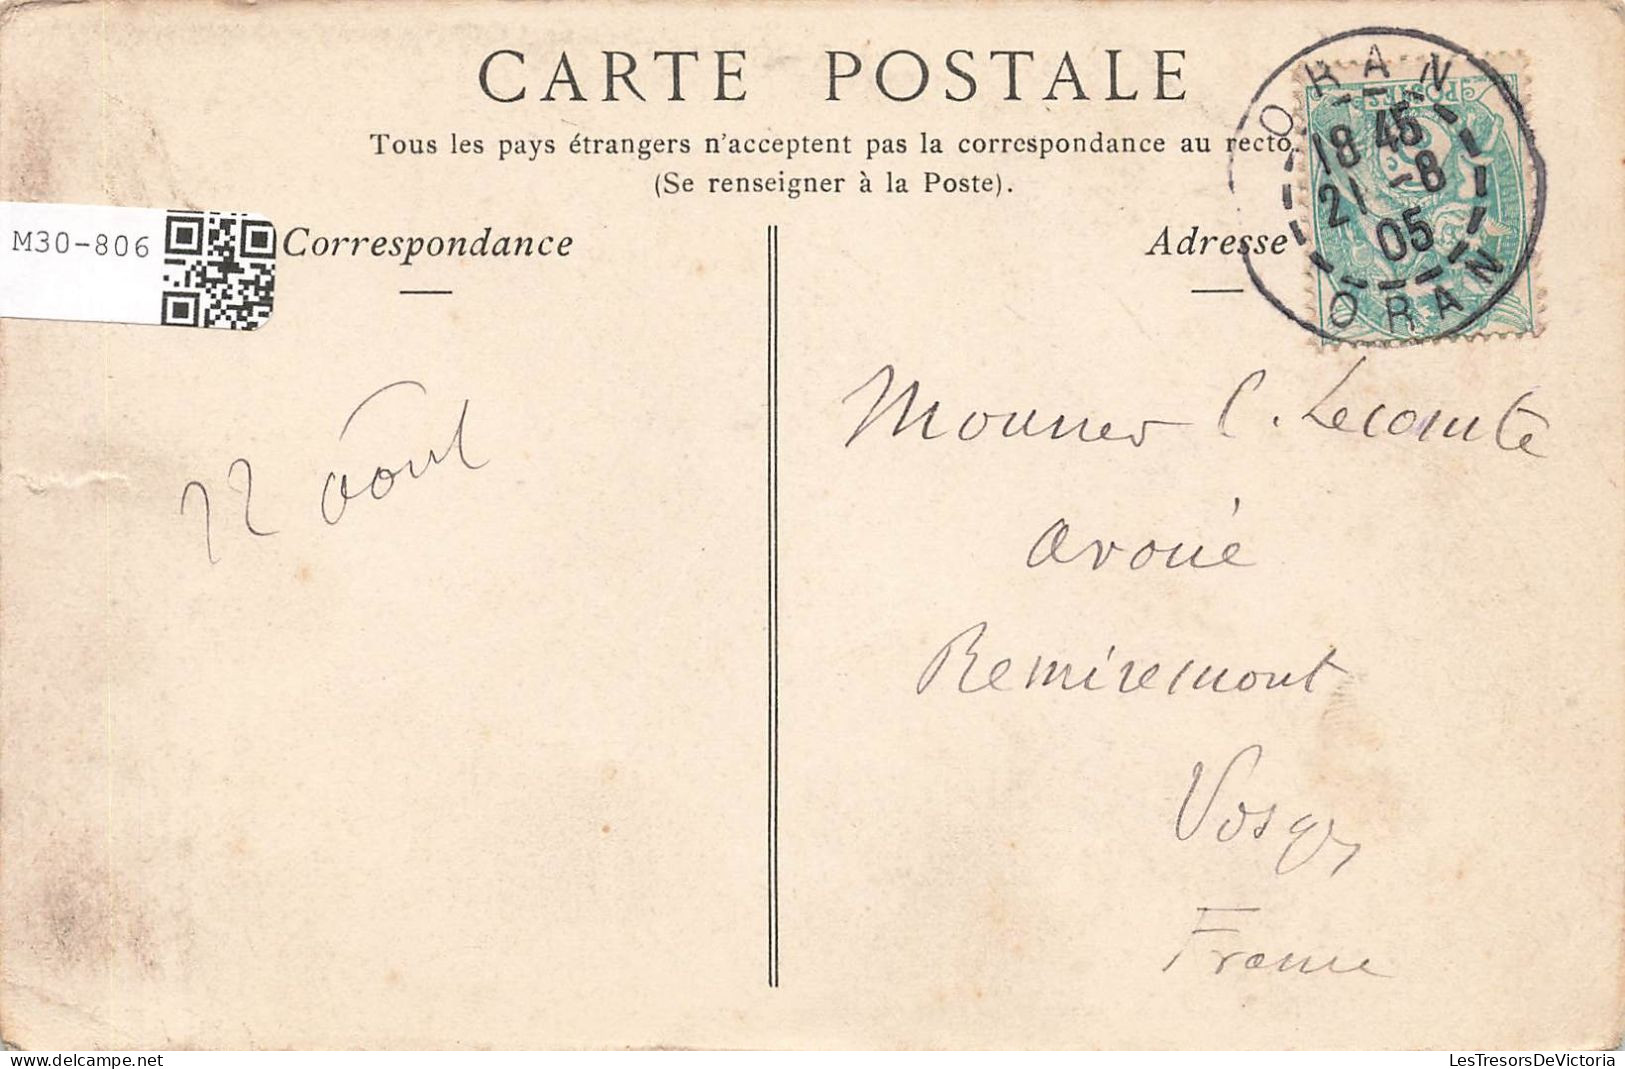 CARTE POSTALE
Tous les pays étrangers n'acceptent pas la correspondance au recto.
(Se renseigner à la Poste).
M30-806
Correspondance
Adresse
ORAN
POSTES
18 45
21 -8
05
ORAN
22 août
Monsieur C. Lecomte
avoué
Remiremont
Vosges
France
delcampe.net
LesTresorsDeVictoria